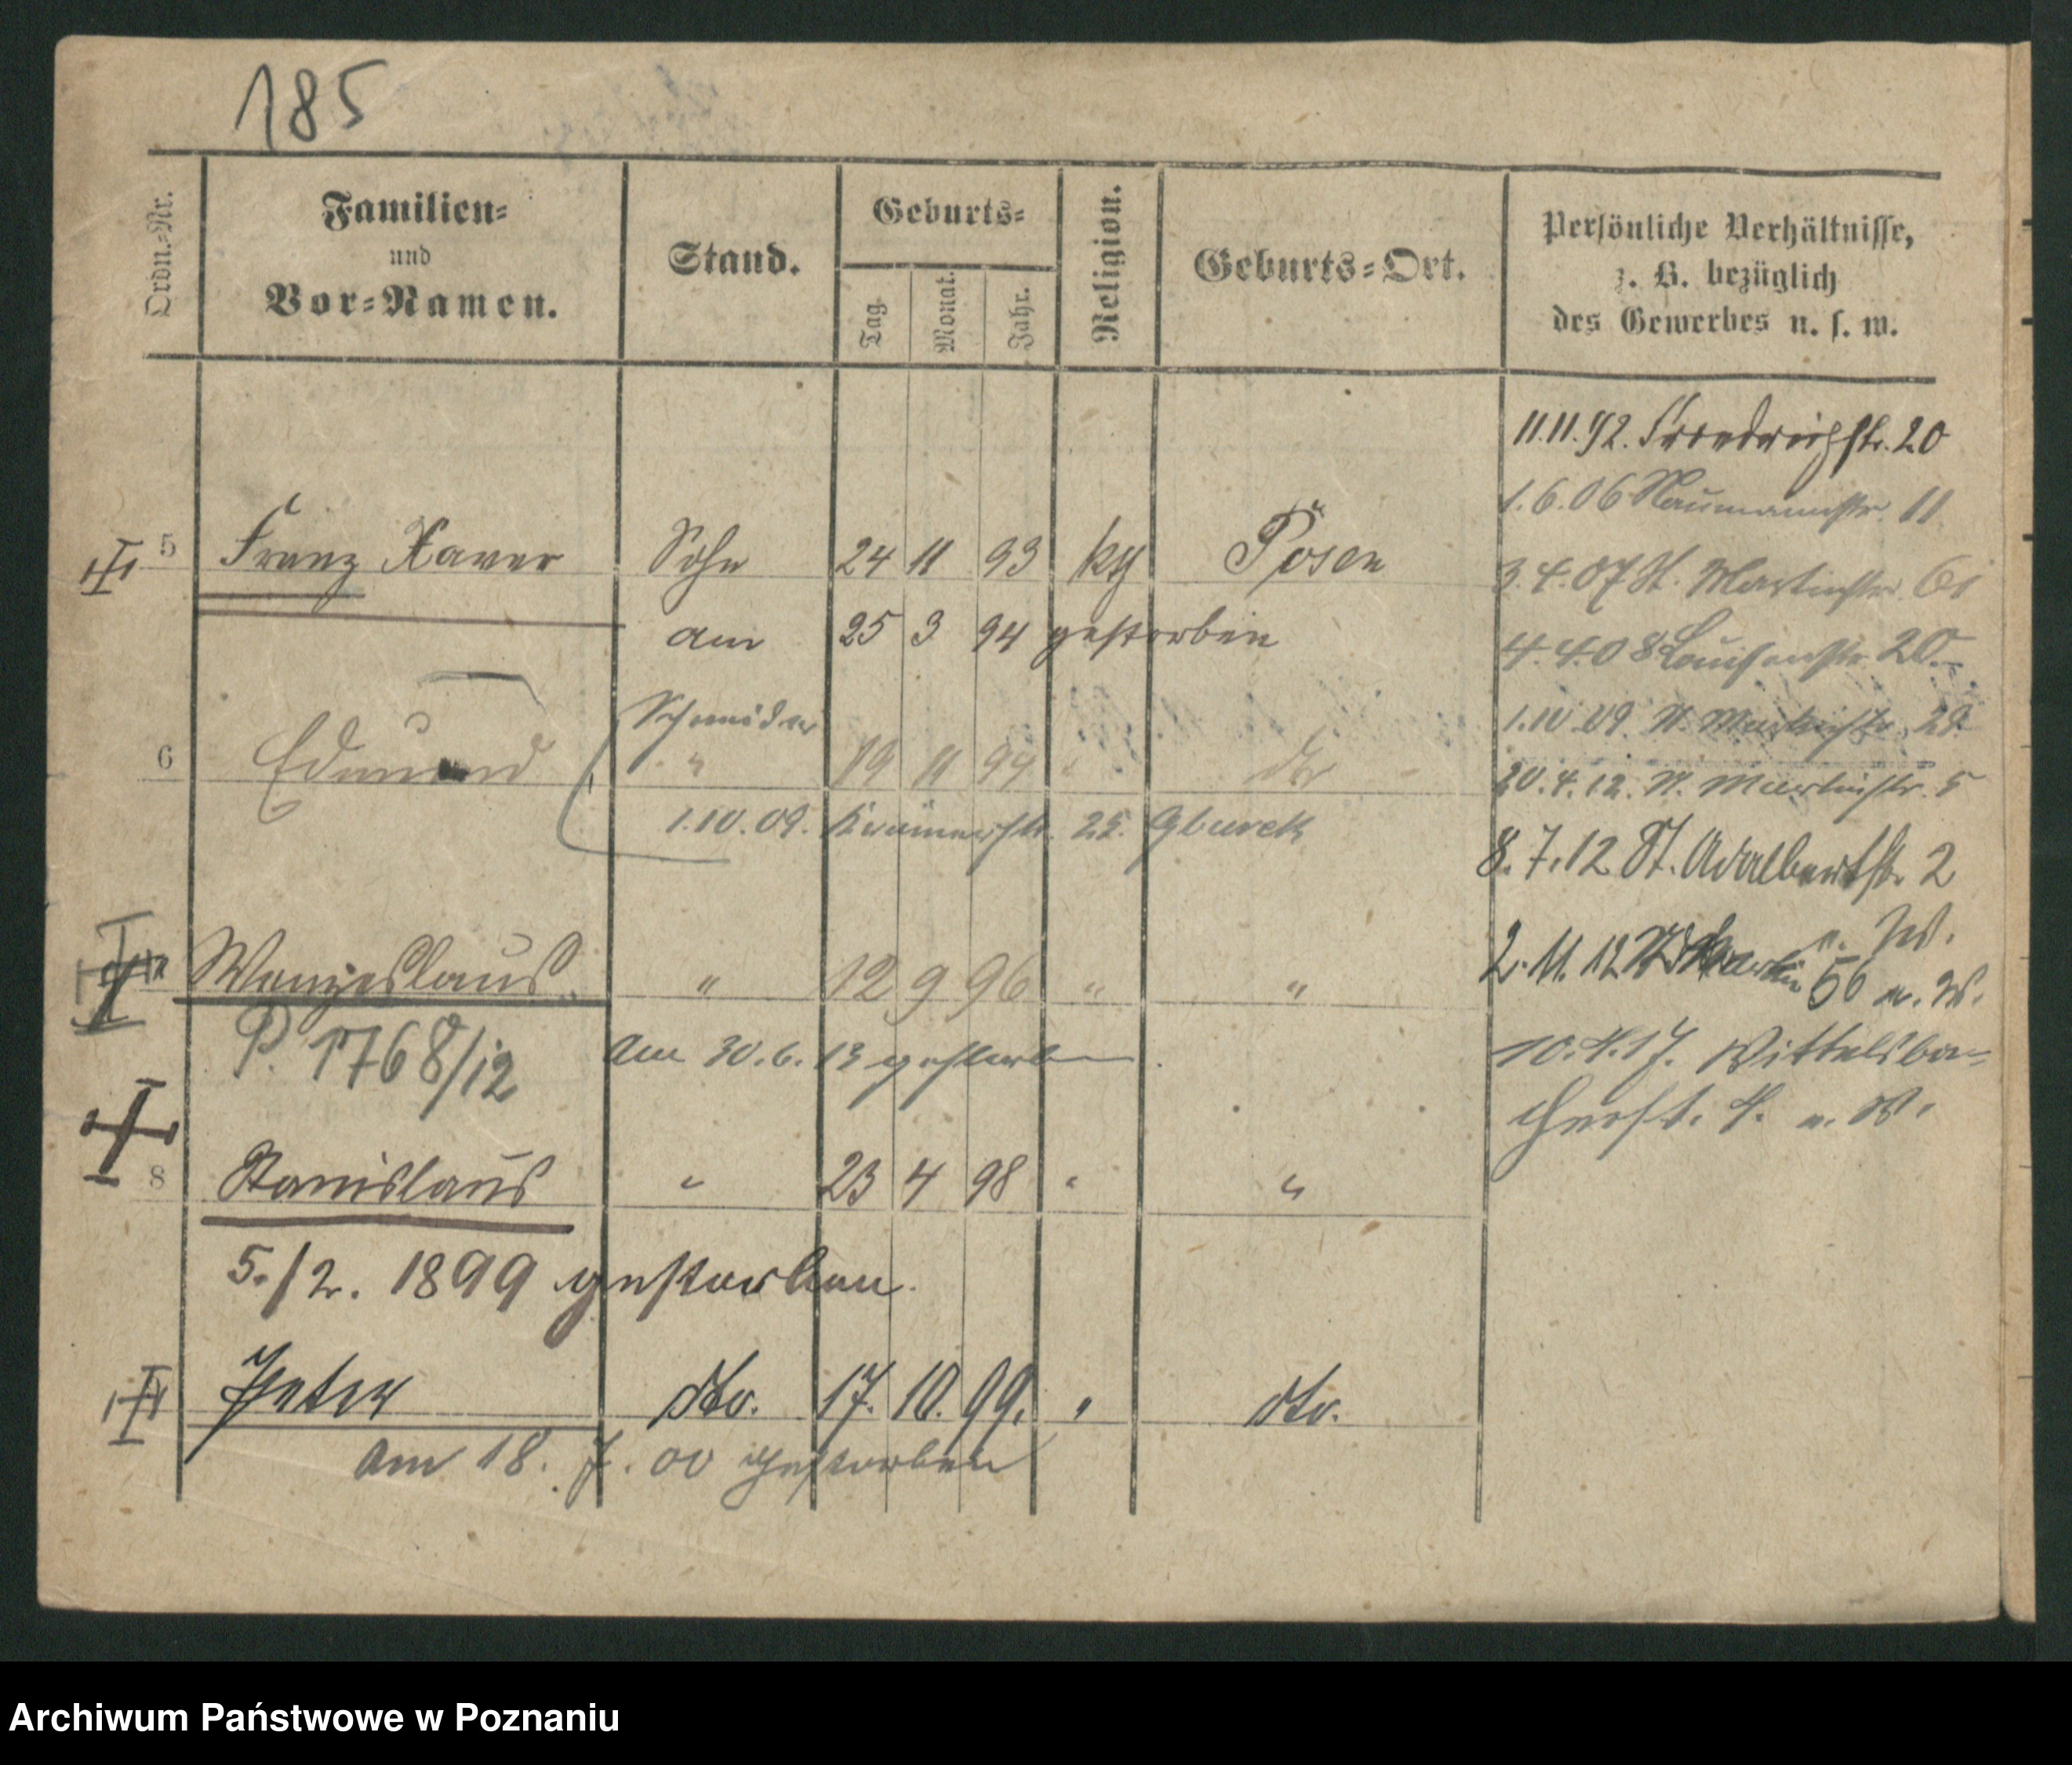 185
Ordn.-Nr.
Familien-
und
Vor-Namen.
Stand.
Geburts-
Tag
Monat.
Jahr.
Religion.
Geburts-Ort.
Persönliche Verhältnisse,
z. B. bezüglich
des Gewerbes u. s. w.
5 Franz Xaver Sohn 24 11 93 kg Posen
am 25 3 94 gestorben
Schneider
6 Edmund " 19 11 94 " dto
1.10.09. Krämerstr. 25. Gburek
Wenzeslaus " 12 9 96 " "
P. 1768/12
am 30.6.13 gestorben
8 Stanislaus " 23 4 98 " "
5./2. 1899 gestorben.
Peter dto. 17. 10. 99. " dto.
am 18. 7. 00 gestorben
11.11.92. Friedrichstr. 20
1.6.06 Naumannstr. 11
3.4.07 St. Martinstr. 61
4.4.08 Louisenstr. 20.
1.10.09. St. Martinstr. 29.
20.4.12. St. Martinstr. 5
8.7.12 St. Adalbertstr. 2
u. W.
2.11.12 St. Martin 56 u. W.
10.4.17. Wittelsba-
cherst. 4. u. W.
Archiwum Państwowe w Poznaniu